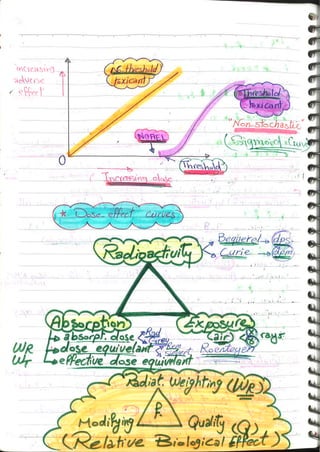 increasing
adverse
effect
Non threshold
toxicant
Threshold
toxicant
Non stochastic
(Sigmoid Curve
NOAEL
O
Threshold
Increasing dose
* Dose effect curves
Radioactivity
Bequerel → dps
Curie → dpm
Absorption
→ absorpt. dose Rad
Gray
WR → dose equivelant Rem
Sievert
WT → effective dose equivelant
Exposure
(air) rays
Roentegen
Radiat. Weighting (WR)
Modifying Quality (Q)
(Relative Biological Effect)